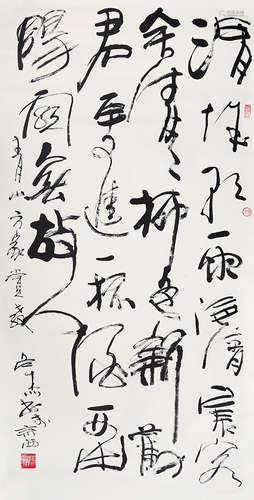 渭城朝雨浥清塵客
舍青青柳色新勸
君更進一杯酒西出
陽關無故人
青山方家賞教